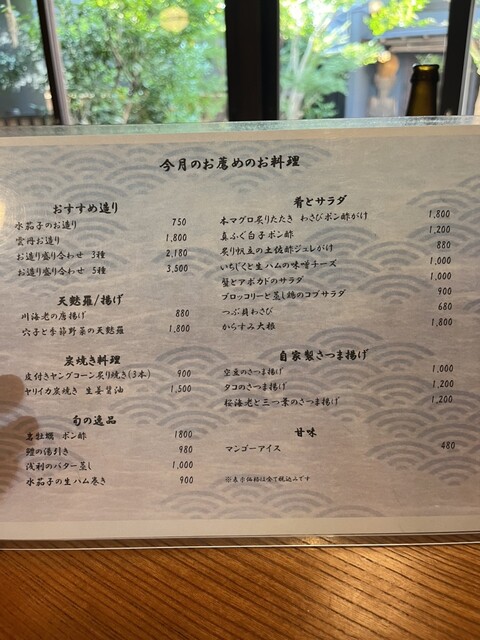 今月のお薦めのお料理
おすすめ造り
水茄子のお造り 750
雲丹お造り 1,800
お造り盛り合わせ 3種 2,180
お造り盛り合わせ 5種 3,500
天麩羅/揚げ
川海老の唐揚げ 880
穴子と季節野菜の天麩羅 1,800
炭焼き料理
皮付きヤングコーン炙り焼き(3本) 900
ヤリイカ炭焼き 生姜醤油 1,500
旬の逸品
岩牡蠣 ポン酢 1800
鱧の湯引き 980
浅利のバター蒸し 1,000
水茄子の生ハム巻き 900
肴とサラダ
本マグロ炙りたたき わさびポン酢がけ 1,800
真ふぐ白子ポン酢 1,200
炙り帆立の土佐酢ジュレがけ 880
いちじくと生ハムの味噌チーズ 1,000
蟹とアボカドのサラダ 1,000
ブロッコリーと蒸し鶏のコブサラダ 900
つぶ貝わさび 680
からすみ大根 1,800
自家製さつま揚げ
空豆のさつま揚げ 1,000
タコのさつま揚げ 1,200
桜海老と三つ葉のさつま揚げ 1,200
甘味
マンゴーアイス 480
※表示価格は全て税込みです